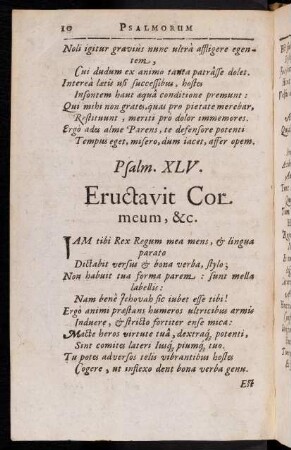 10 PSALMORUM
Noli igitur gravius nunc ultrà affligere egen-
tem,
Cui dudum ex animo tanta patrâsse dolet.
Intereà lætis usi successibus, hostes
Insontem haut æquâ conditione premunt:
Qui mihi non grates, quas pro pietate merebar,
Restituunt, meriti pro dolor immemores.
Ergò ades alme Parens, te defensore potenti
Tempus eget, misero, dum iaces, affer opem.
Psalm. XLV.
Eructavit Cor
meum, &c.
IAM tibi Rex Regum mea mens, & lingua
parato
Dictabit versus & bona verba, stylo;
Non habuit tua forma parem: sunt mella
labellis:
Nam benè Jehovah sic iubet esse tibi!
Ergò animi præstans humeros ultricibus armis
Induere, & stricto fortiter ense mica:
Macte heros virtute tuâ, dextraq́; potenti,
Sint comites lateri Iusq́; piumq́; tuo.
Tu potes adversos telis vibrantibus hostes
Cogere, ut inflexo dent bona verba genu.
Est